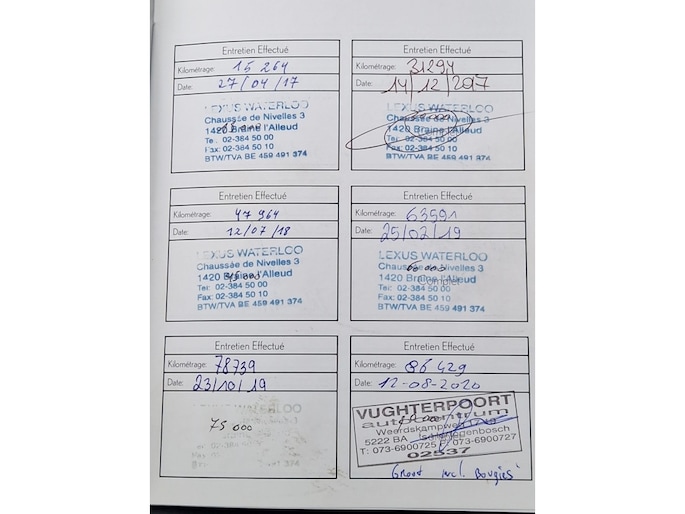 Entretien Effectué
Kilométrage: 15 264
Date: 27/04/17
LEXUS WATERLOO
Chaussée de Nivelles 3
1420 Braine l'Alleud
Tel: 02-384 50 00
Fax: 02-384 50 10
BTW/TVA BE 459 491 374
Entretien Effectué
Kilométrage: 31294
Date: 14/12/2017
LEXUS WATERLOO
Chaussée de Nivelles 3
1420 Braine l'Alleud
Tel: 02-384 50 00
Fax: 02-384 50 10
BTW/TVA BE 459 491 374
Entretien Effectué
Kilométrage: 47 964
Date: 12/07/18
LEXUS WATERLOO
Chaussée de Nivelles 3
45 000
1420 Braine l'Alleud
Tel: 02-384 50 00
Fax: 02-384 50 10
BTW/TVA BE 459 491 374
Entretien Effectué
Kilométrage: 63591
Date: 25/02/19
LEXUS WATERLOO
Chaussée de Nivelles 3
60 000
1420 Braine l'Alleud
Complet
Tel: 02-384 50 00
Fax: 02-384 50 10
BTW/TVA BE 459 491 374
Entretien Effectué
Kilométrage: 78739
Date: 23/10/19
75 000
Entretien Effectué
Kilométrage: 86 429
Date: 12-08-2020
VUGHTERPOORT
autocentrum
Weerdskampweg
5222 BA 's-Hertogenbosch
T: 073-6900725 F: 073-6900727
02537
Groot incl. Bougies